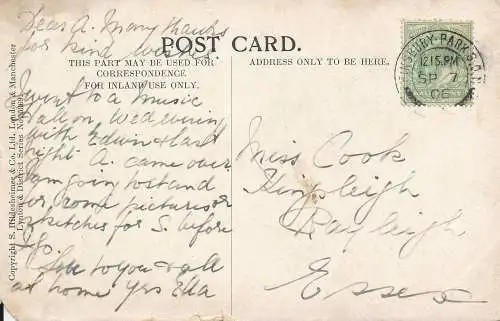 Dear A. Many thanks
for kind wishes.
POST CARD.
THIS PART MAY BE USED FOR
CORRESPONDENCE
FOR INLAND USE ONLY.
ADDRESS ONLY TO BE HERE.
I went to a Music
Hall on Wed evening
with Edwin & last
night A. came over
I am going to stand
for some pictures or
sketches for S. before
Love to you & all
at home yrs Ella
Miss Cook
Kingsleigh
Rayleigh
Essex
FINSBURY-PARK S.O.N.
12.15.PM
SP 7
06
Copyright S. Hildesheimer & Co. Ltd., London & Manchester